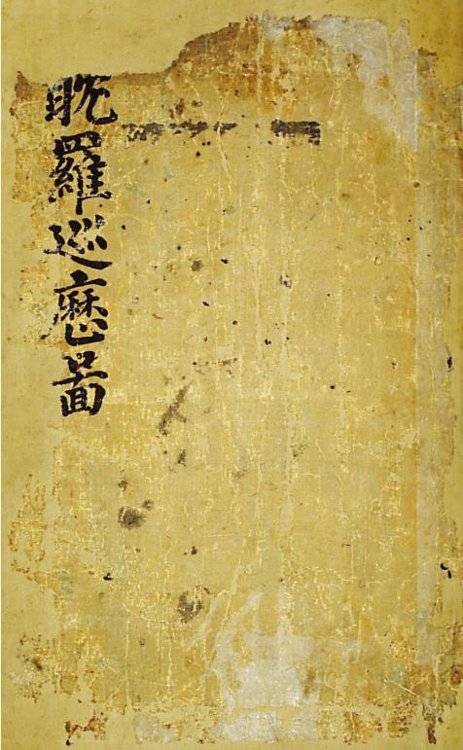 耽羅巡歷圖